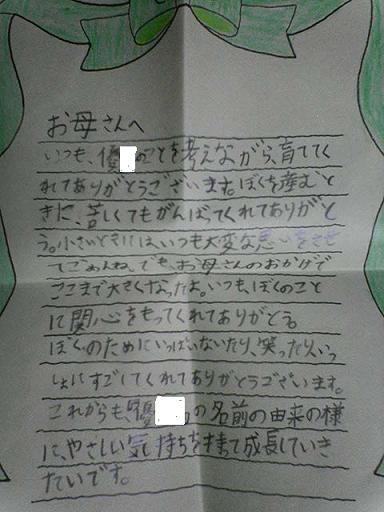 お母さんへ
いつも、優 のことを考えながら、育ててく
れてありがとうございます。ぼくを産むと
きに、苦しくてもがんばってくれてありがと
う。小さいときには、いつも大変な思いをさせ
てごめんね。でも、お母さんのおかげで
ここまで大きくなったよ。いつも、ぼくのこと
に関心をもってくれてありがとう。
ぼくのためにいっぱいないたり、笑ったり、いっ
しょにすごしてくれてありがとうございます。
これからも、優 の名前の由来の様
に、やさしい気持ちを持って成長していき
たいです。